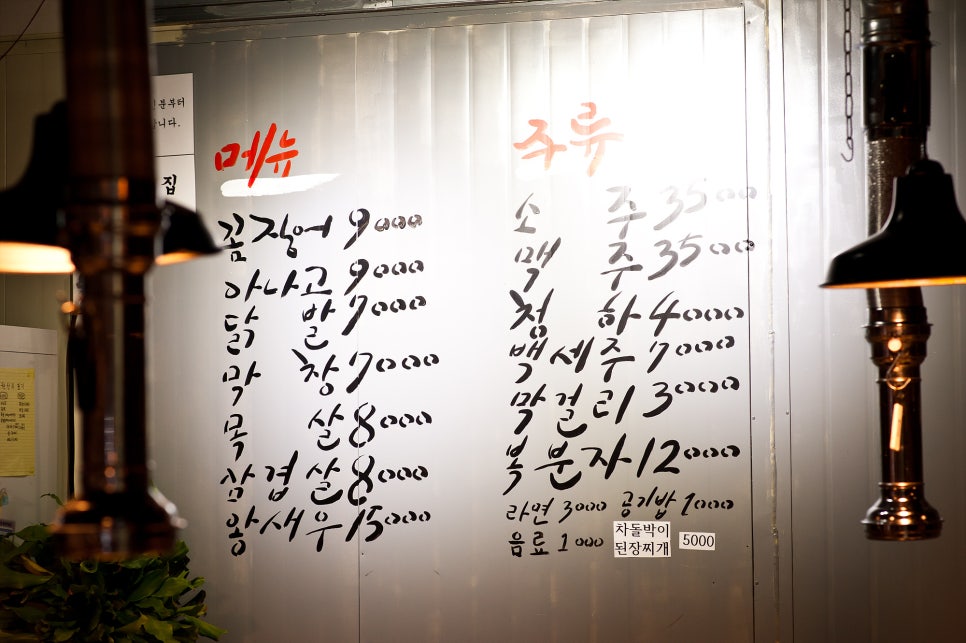 분부터
니다.
집
메뉴
꼼장어 9000
아나고 9000
닭발 7000
막창 7000
목살 8000
삼겹살 8000
왕새우 15000
주류
소주 3500
맥주 3500
청하 4000
백세주 7000
막걸리 3000
복분자 12000
라면 3000 공기밥 1000
음료 1000
차돌박이
된장찌개 5000